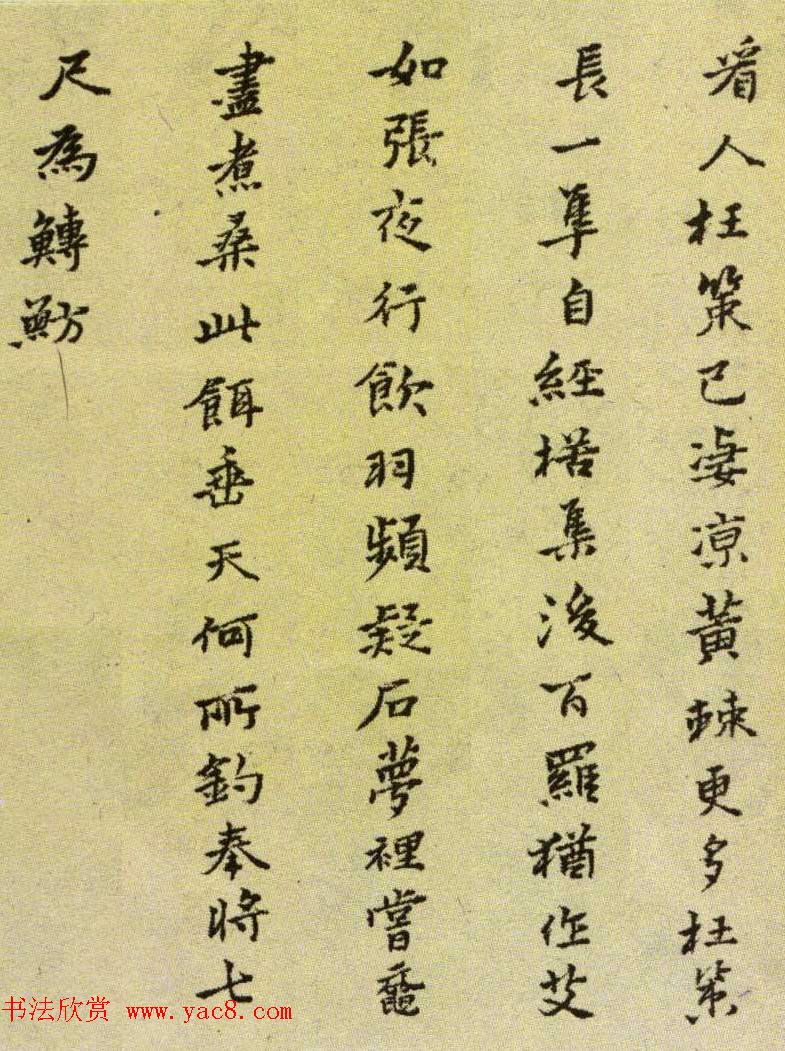 看人枉策已凄凉黃棘更多枉策
長一隼自經楛集後百羅猶作艾
如張夜行飲羽頻疑石夢裡嘗黿
盡煮桑此餌垂天何所釣奉將七
尺為鱄魴
书法欣赏 www.yac8.com